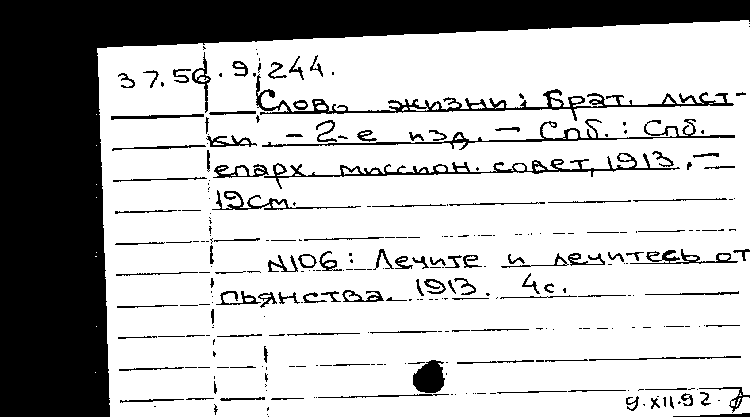 37.56.9.244.
Слово жизни: Брат. лист-
ки. - 2-е изд. - Спб.: Спб.
епарх. миссион. совет, 1913. -
19см.
N106: Лечите и лечитесь от
пьянства. 1913. 4с.
9.XII.92.